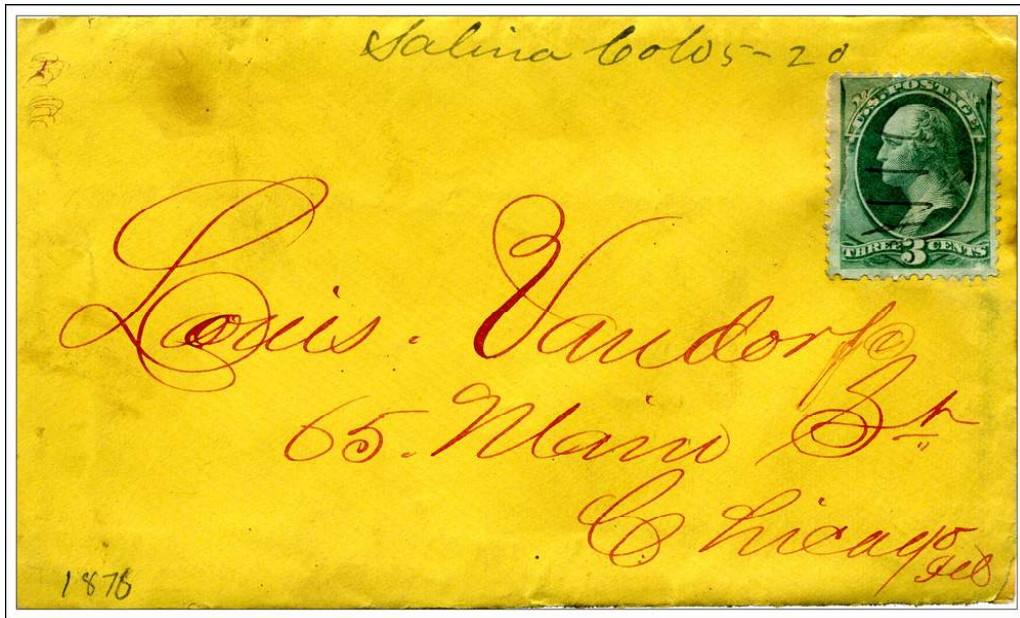 Salina Colo 5-20
U.S. POSTAGE
THREE 3 CENTS
Louis. Vandorf
65. Main St
Chicago
Ills
1878